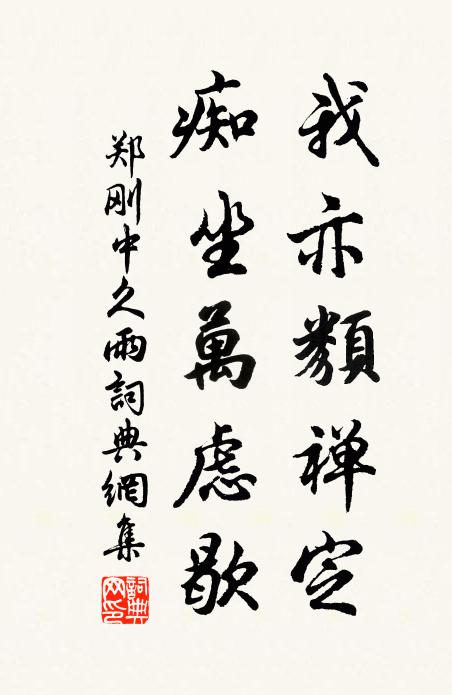 我亦類禅定
痴坐萬慮歇
郑刚中久雨詞典網集
詞典網印